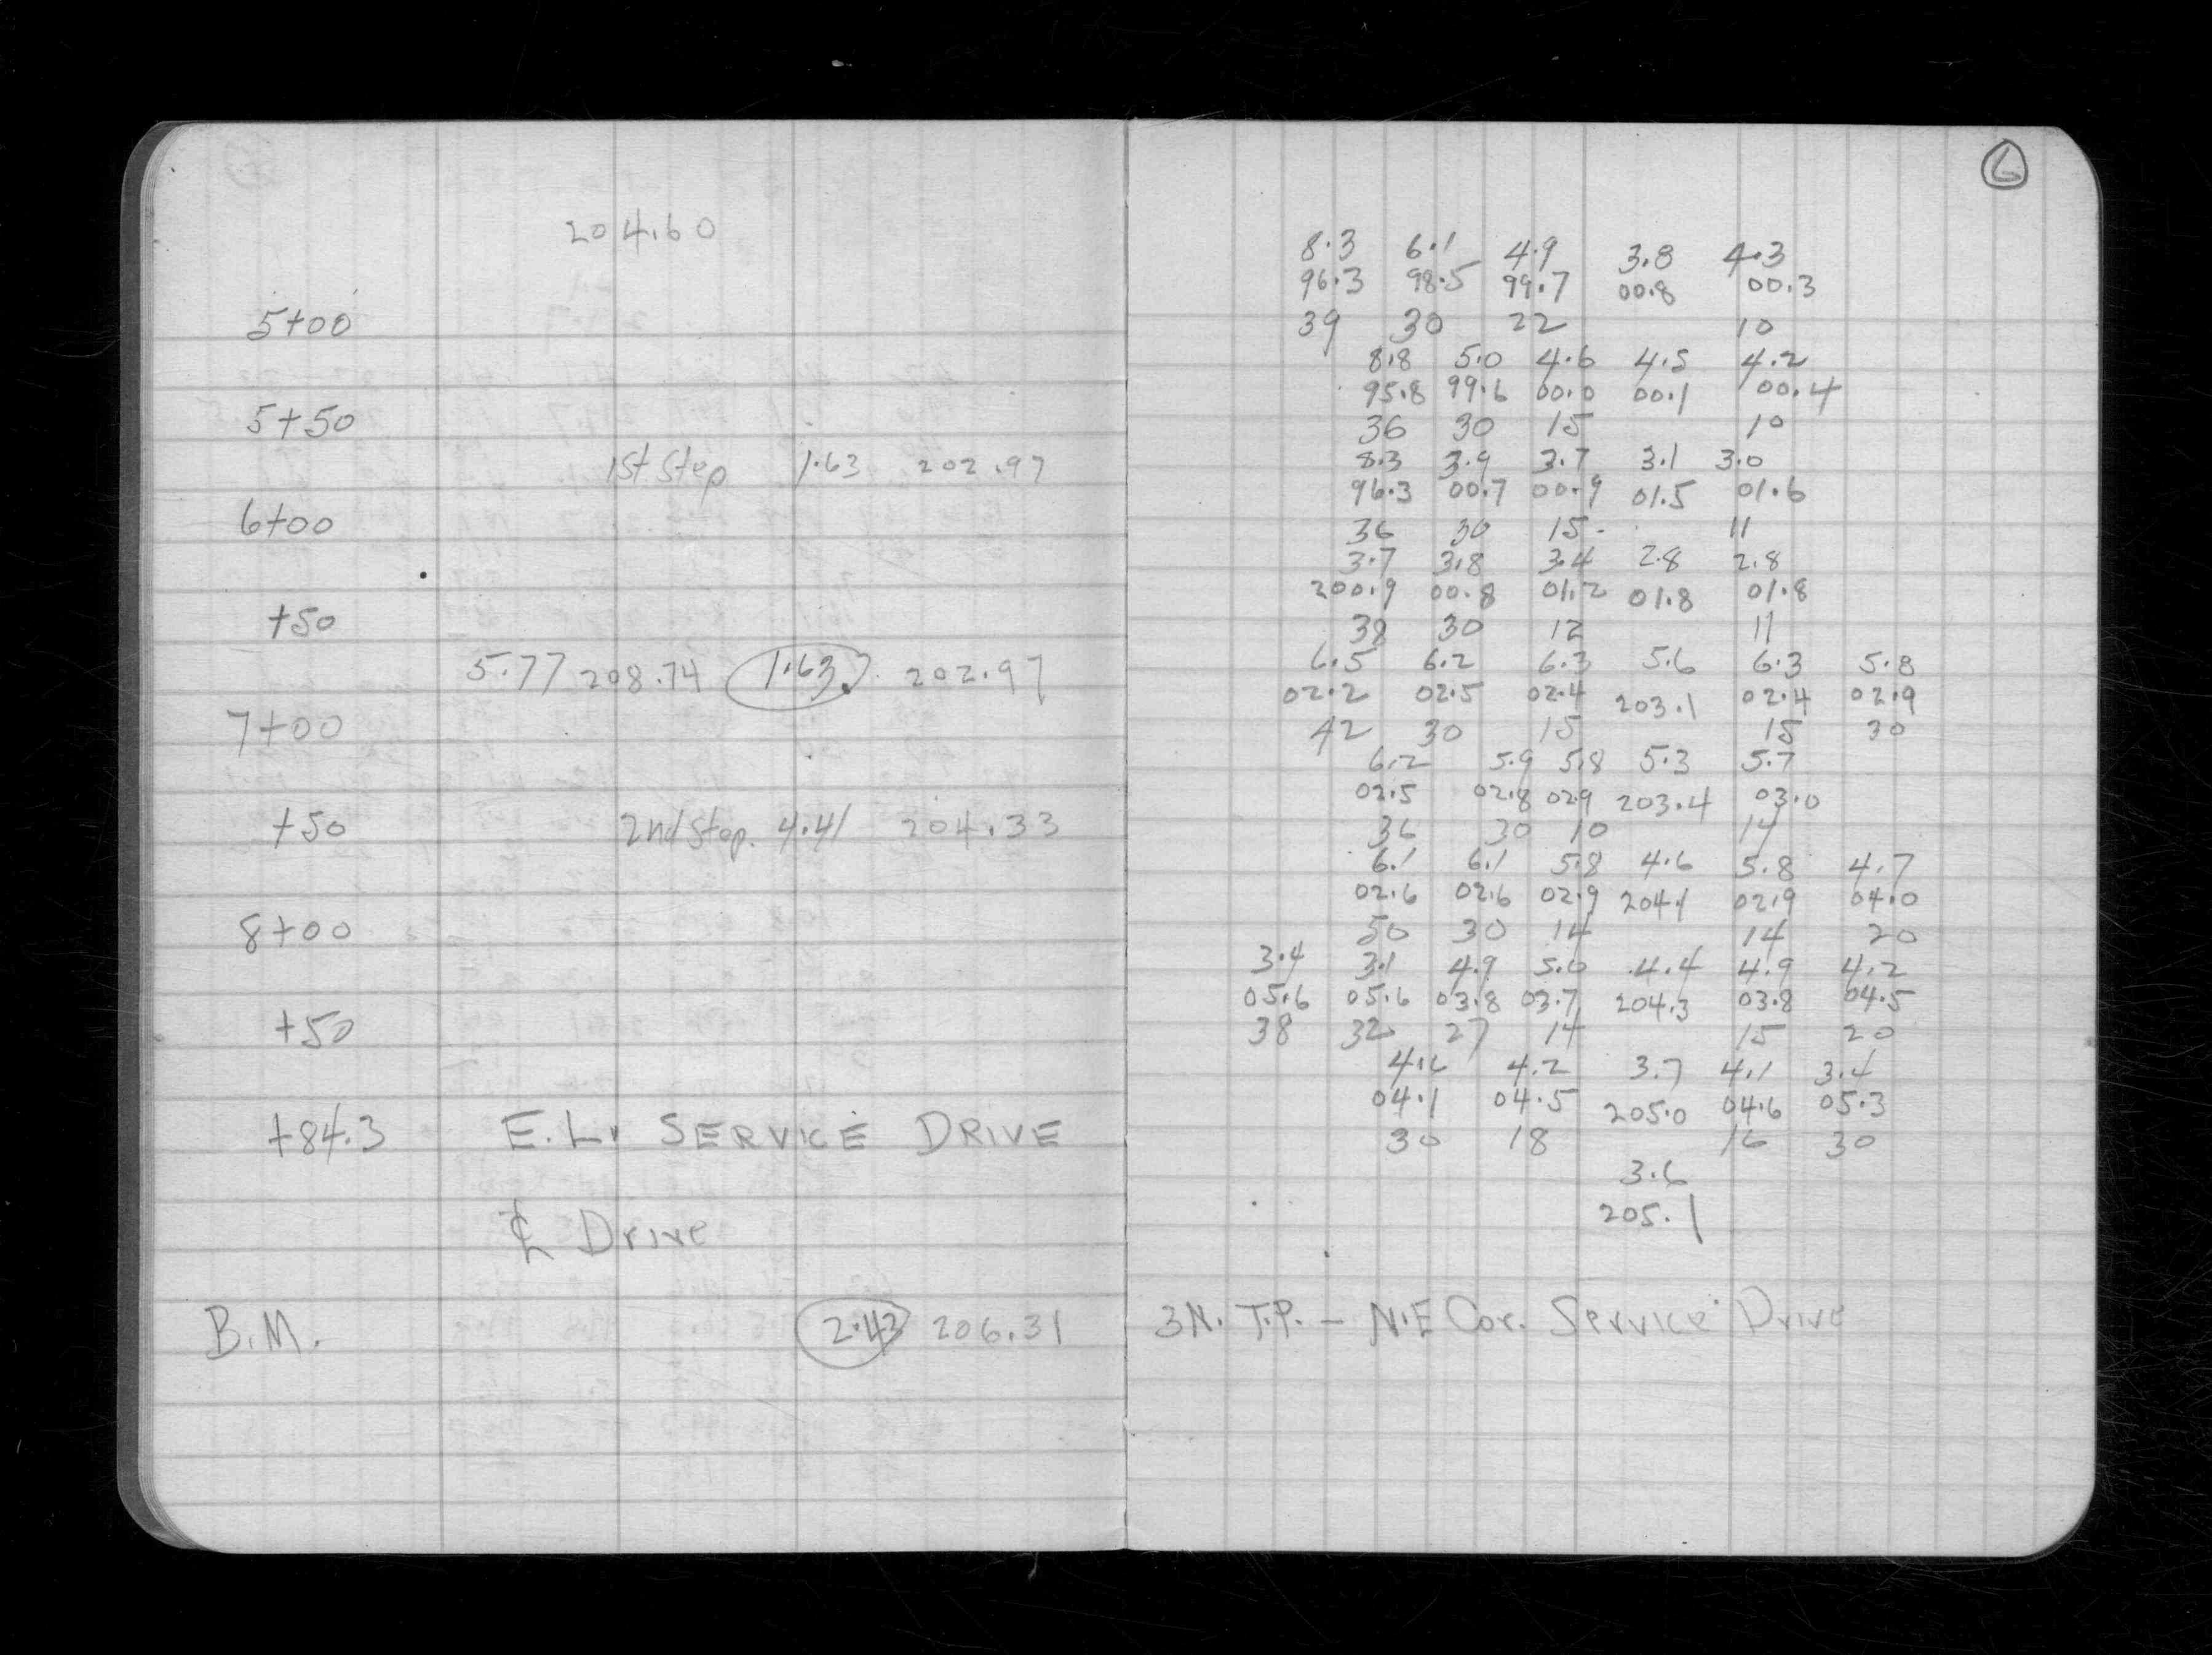 204.60
5+00
5+50
1st Step 1.63 202.97
6+00
+50
5.77 208.74 1.63 202.97
7+00
+50 2nd Step. 4.41 204.33
8+00
+50
+84.3 E.L. SERVICE DRIVE
℄ Drive
B.M. 2.43 206.31
6
8.3 6.1 4.9 3.8 4.3
96.3 98.5 99.7 00.8 00.3
39 30 22 10
8.8 5.0 4.6 4.5 4.2
95.8 99.6 00.0 00.1 00.4
36 30 15 10
8.3 3.9 3.7 3.1 3.0
96.3 00.7 00.9 01.5 01.6
36 30 15 11
3.7 3.8 3.4 2.8 2.8
200.9 00.8 01.2 01.8 01.8
38 30 12 11
6.5 6.2 6.3 5.6 6.3 5.8
02.2 02.5 02.4 203.1 02.4 02.9
42 30 15 15 30
6.2 5.9 5.8 5.3 5.7
02.5 02.8 02.9 203.4 03.0
36 30 10 14
6.1 6.1 5.8 4.6 5.8 4.7
02.6 02.6 02.9 204.1 02.9 04.0
50 30 14 14 20
3.4 3.1 4.9 5.0 4.4 4.9 4.2
05.6 05.6 03.8 03.7 204.3 03.8 04.5
38 32 27 14 15 20
4.6 4.2 3.7 4.1 3.4
04.1 04.5 205.0 04.6 05.3
30 18 16 30
3.6
205.1
3N. T.P. - N.E Cor. Service Drive